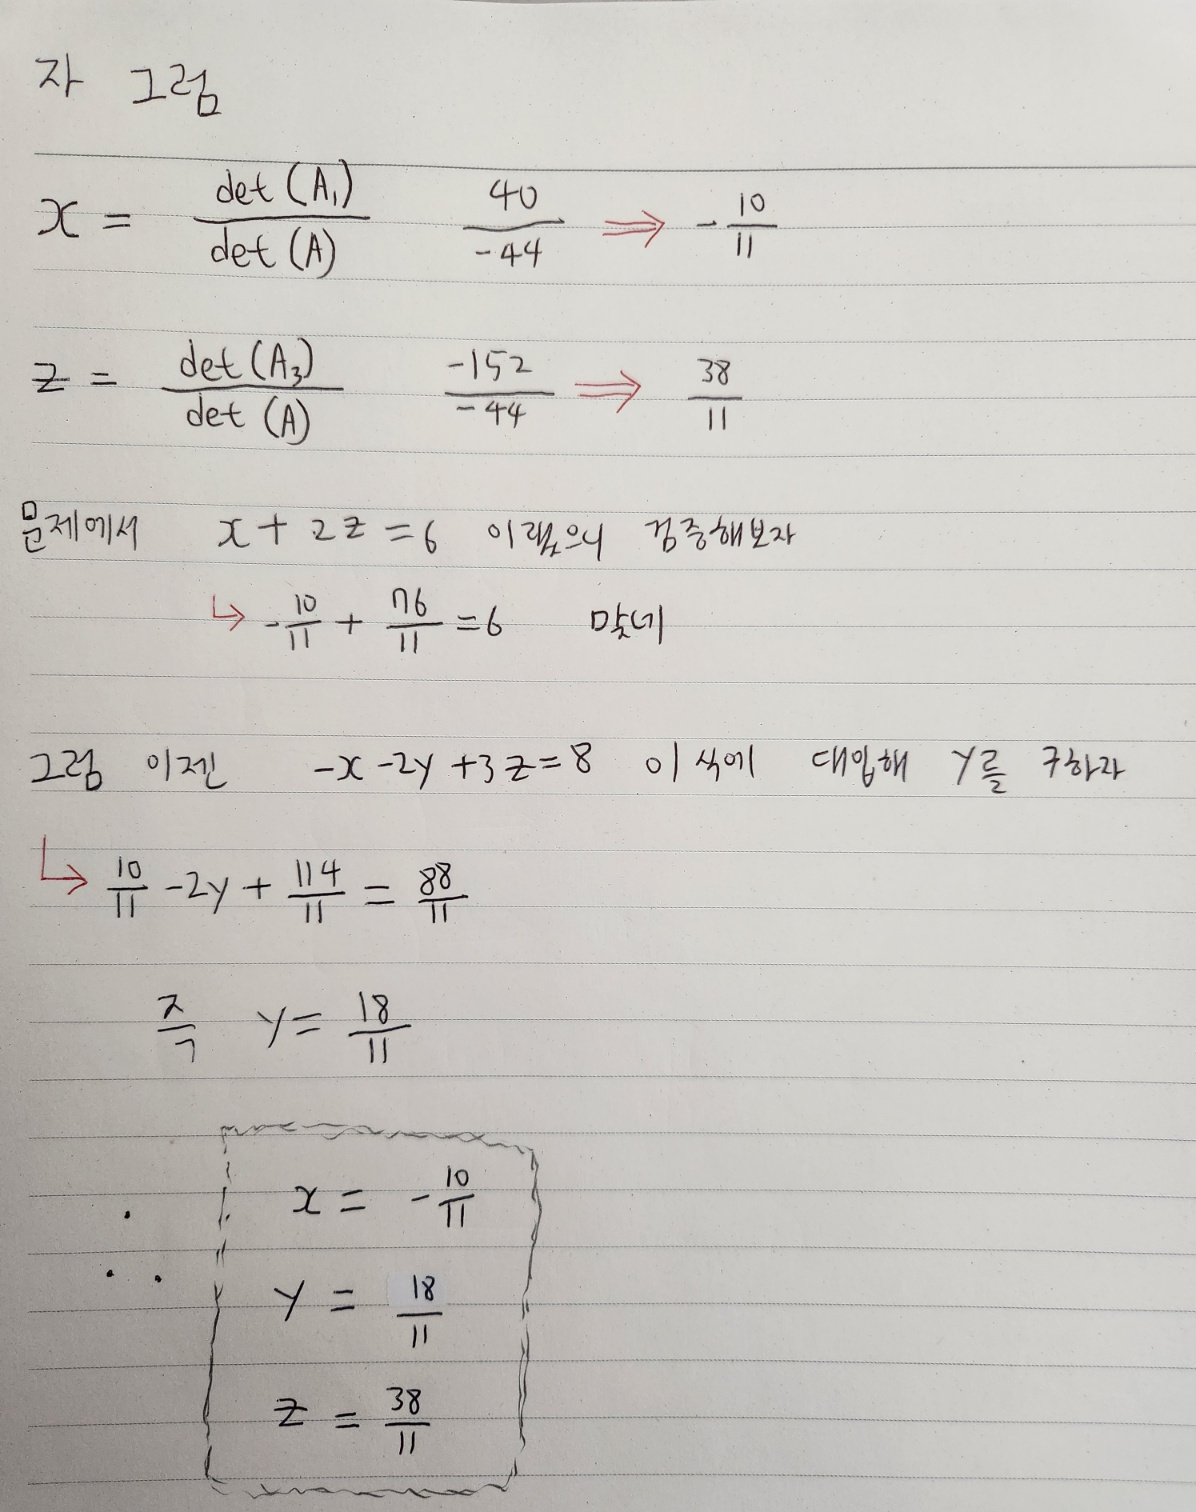 자 그럼
x = det(A₁)/det(A) 40/-44 ⇒ -10/11
z = det(A₃)/det(A) -152/-44 ⇒ 38/11
문제에서 x + 2z = 6 이랬으니 검증해보자
↳ -10/11 + 76/11 = 6 맞네
그럼 이젠 -x -2y +3z = 8 이 식에 대입해 y를 구하자
↳ 10/11 -2y + 114/11 = 88/11
즉 y = 18/11
∴ x = -10/11
y = 18/11
z = 38/11